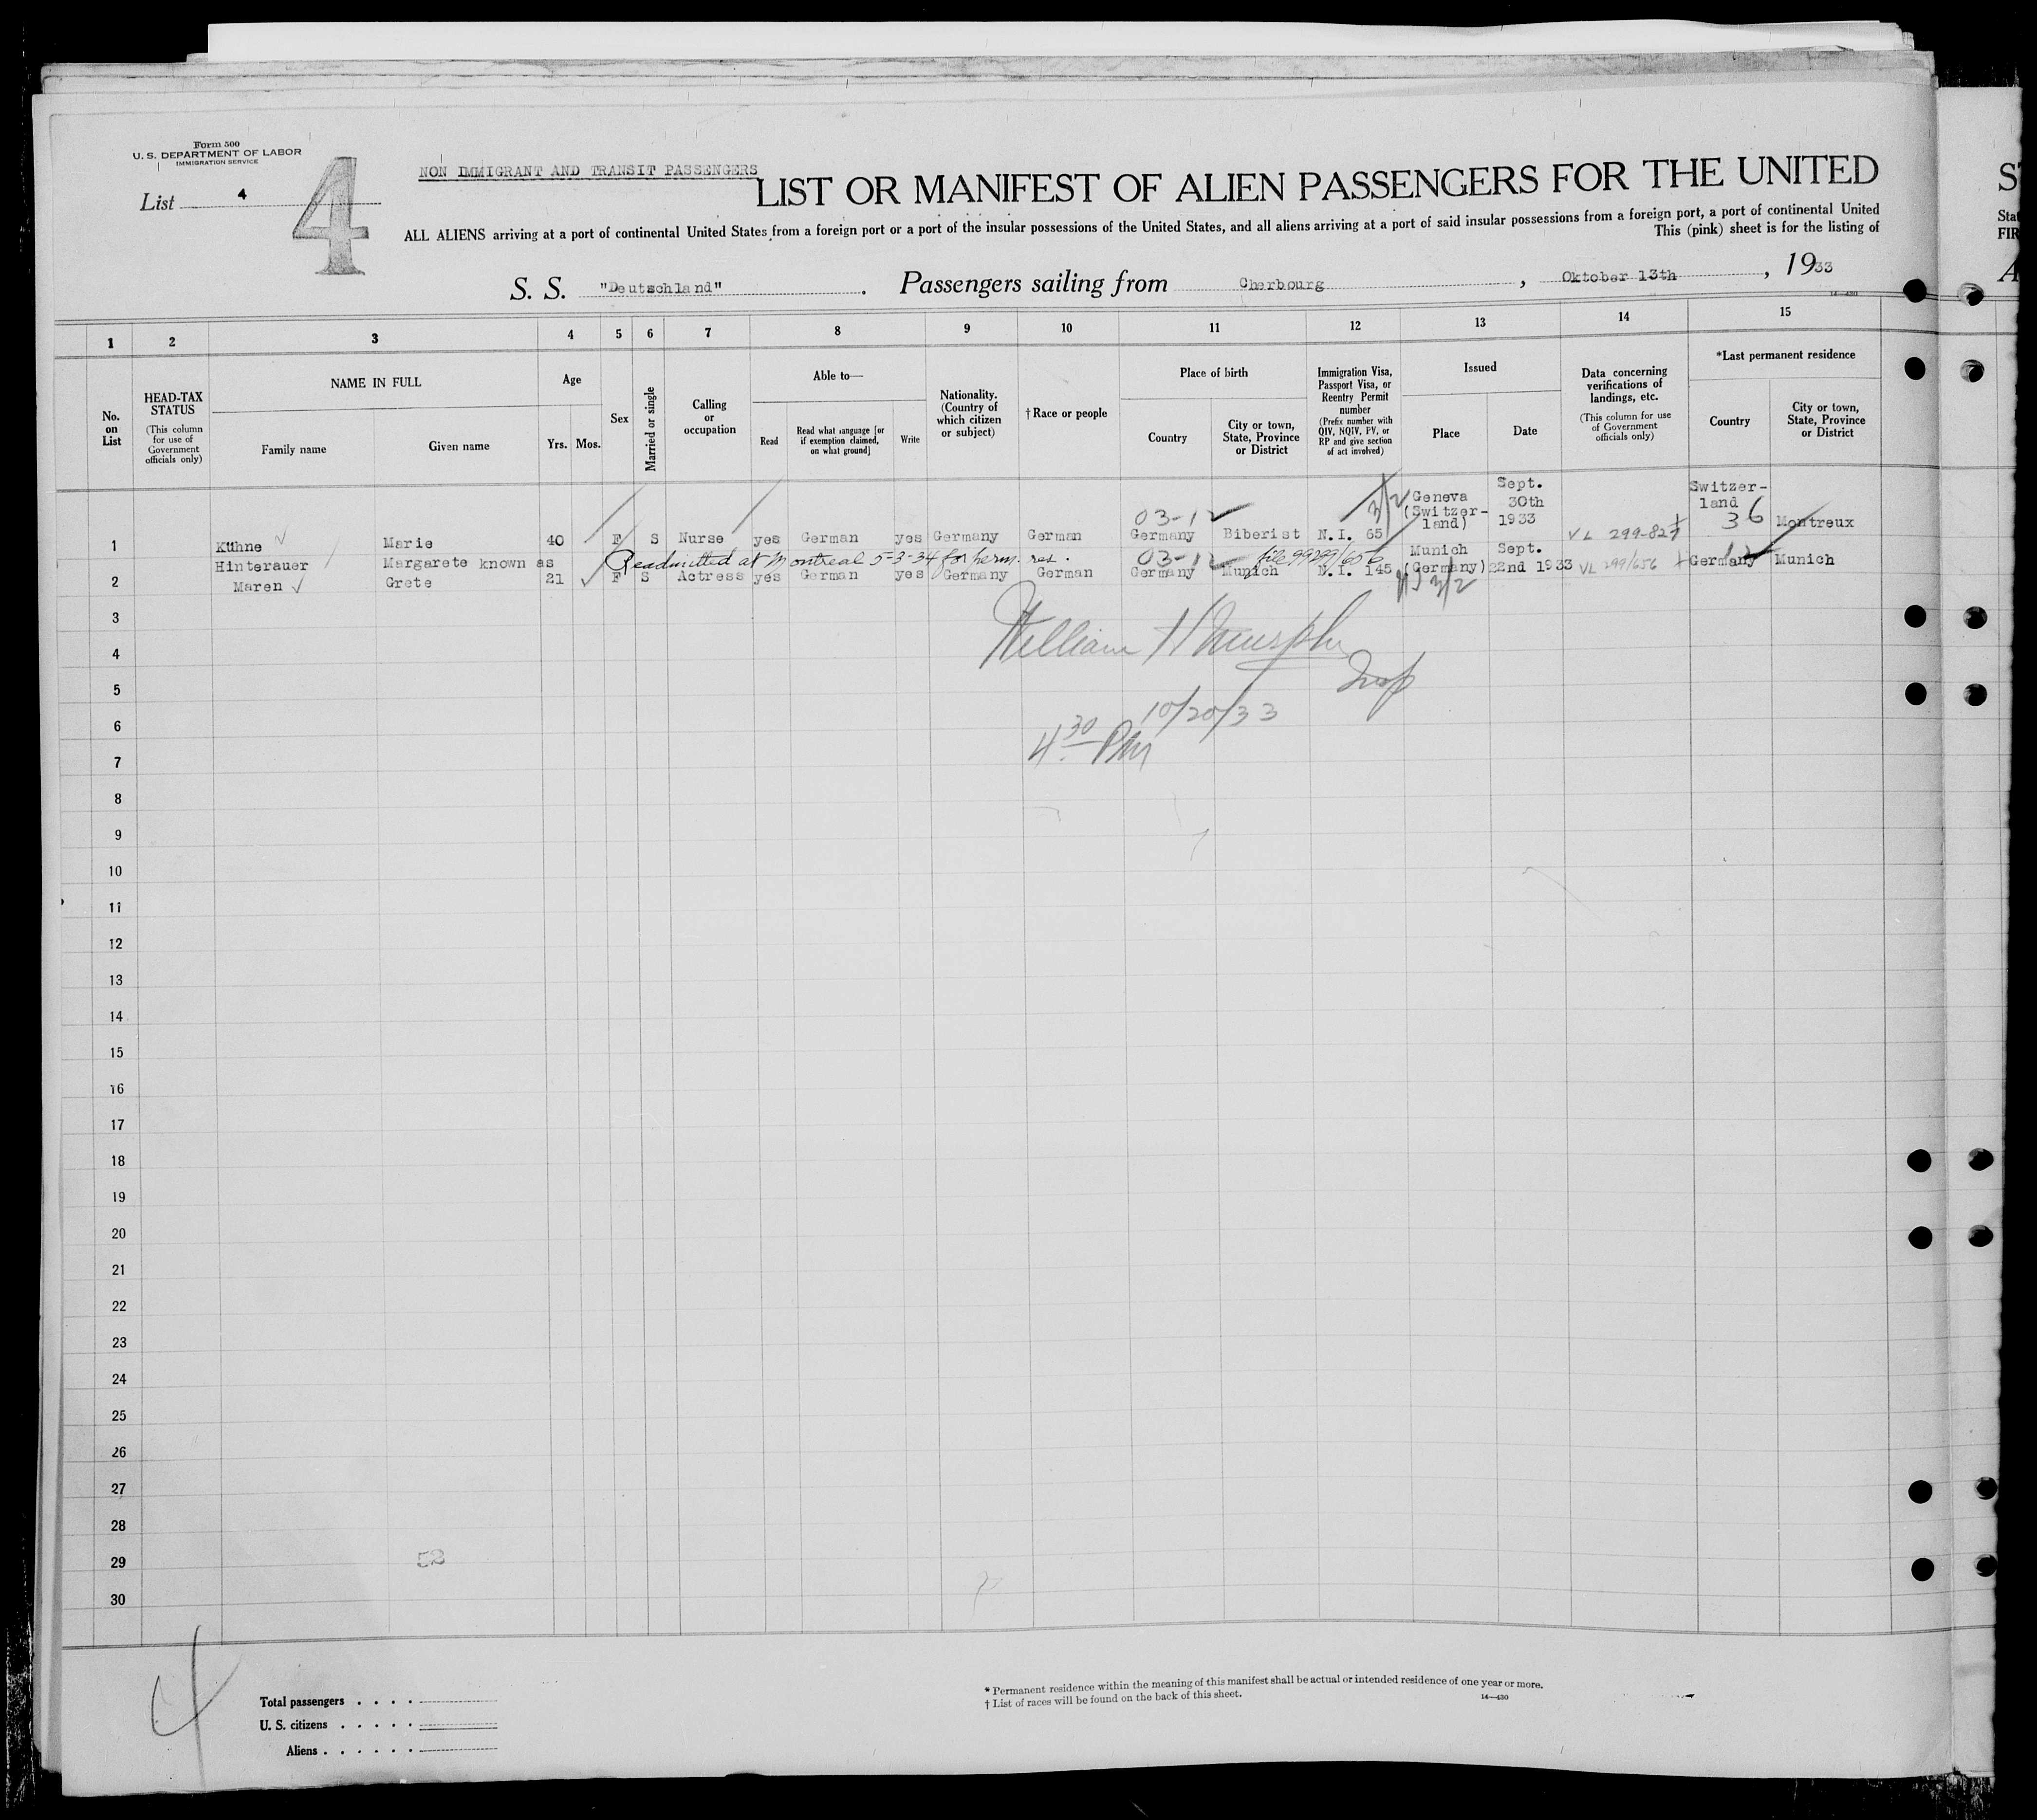 Form 500
U. S. DEPARTMENT OF LABOR
IMMIGRATION SERVICE
List 4
4
NON IMMIGRANT AND TRANSIT PASSENGERS
LIST OR MANIFEST OF ALIEN PASSENGERS FOR THE UNITED
ALL ALIENS arriving at a port of continental United States from a foreign port or a port of the insular possessions of the United States, and all aliens arriving at a port of said insular possessions from a foreign port, a port of continental United
This (pink) sheet is for the listing of
S. S. "Deutschland". Passengers sailing from Cherbourg, Oktober 13th, 1933
14-430
1 2 3 4 5 6 7 8 9 10 11 12 13 14 15
No. on List
HEAD-TAX STATUS
(This column for use of Government officials only)
NAME IN FULL
Family name
Given name
Age
Yrs. Mos.
Sex
Married or single
Calling or occupation
Able to—
Read
Read what language [or if exemption claimed, on what ground]
Write
Nationality. (Country of which citizen or subject)
†Race or people
Place of birth
Country
City or town, State, Province or District
Immigration Visa, Passport Visa, or Reentry Permit number
(Prefix number with QIV, NQIV, PV, or RP and give section of act involved)
Issued
Place
Date
Data concerning verifications of landings, etc.
(This column for use of Government officials only)
*Last permanent residence
Country
City or town, State, Province or District
1 Kühne Marie 40 F S Nurse yes German yes Germany German 03-12 Germany Biberist N.I. 65 3/2 Geneva (Switzer-land) Sept. 30th 1933 VL 299-827 Switzer-land 36 Montreux
Readmitted at Montreal 5-3-34 for perm. res. file 99299/656
2 Hinterauer Margarete known as
Maren Grete 21 F S Actress yes German yes Germany German 03-12 Germany Munich N.I. 145 3/2 Munich (Germany) Sept. 22nd 1933 VL 299/656 Germany 12 Munich
3
4
5
6
7
8
9
10
11
12
13
14
15
16
17
18
19
20
21
22
23
24
25
26
27
28
29
30
William H Murphy
Insp
10/20/33
4 30 PM
52
4
Total passengers
U. S. citizens
Aliens
* Permanent residence within the meaning of this manifest shall be actual or intended residence of one year or more.
† List of races will be found on the back of this sheet.
14-430
ST
Stat
FIR
A